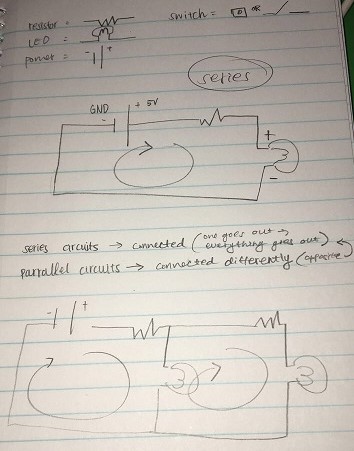 resistor =
switch = OR
LED =
power = - +
series
GND
- + 5V
+
-
series circuits → connected (one goes out → everything goes out)
parrallel circuits → connected differently (opposite)
- +